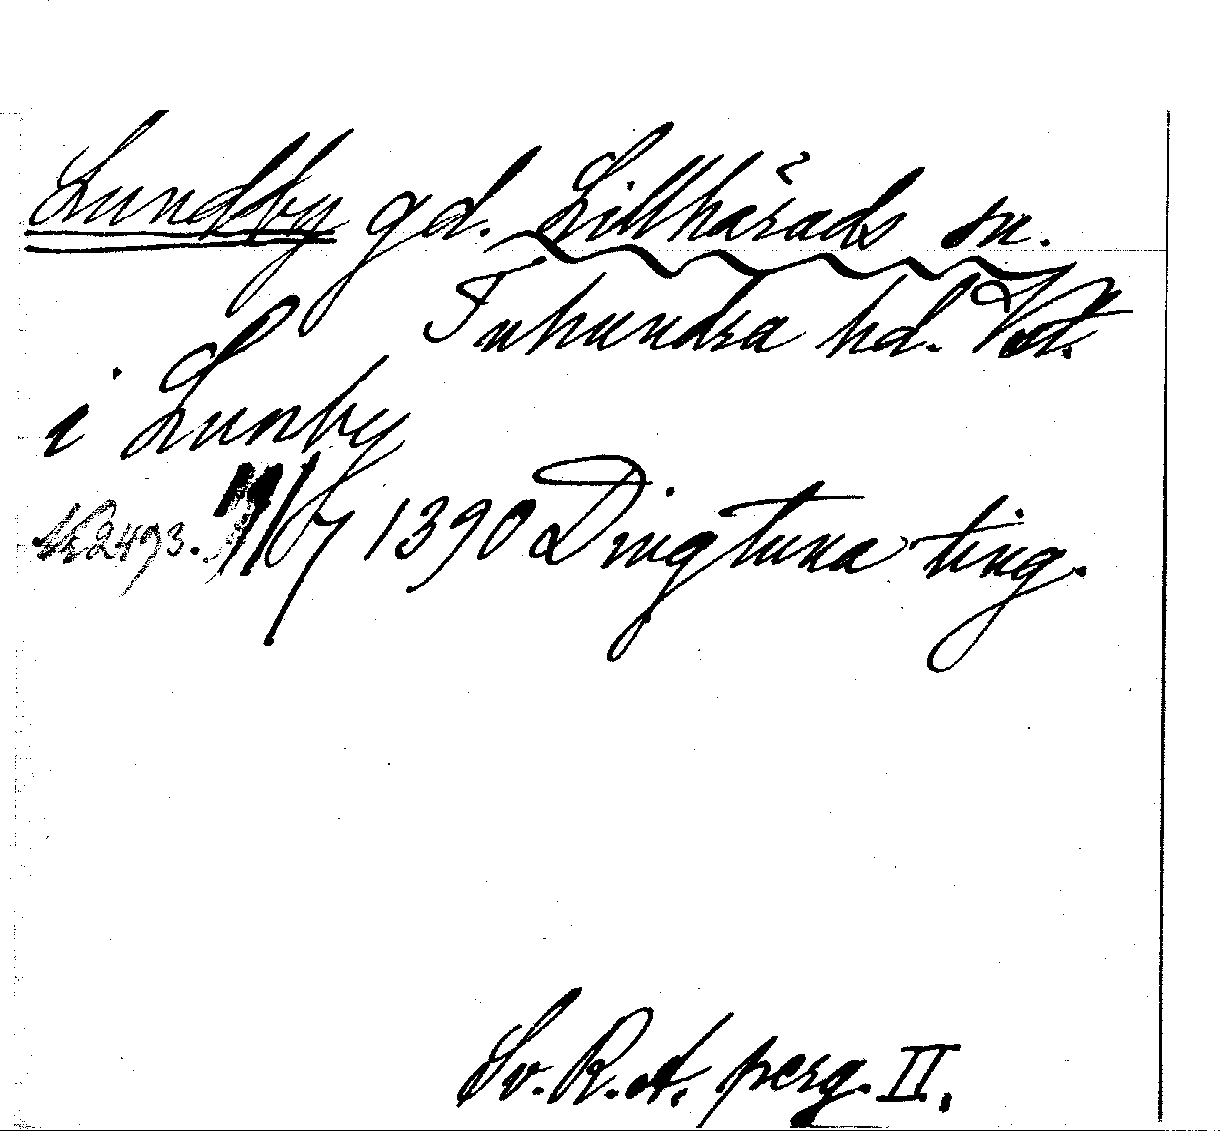 Lundby gd. Lillhärads sn.
Tuhundra hd. Vstm.
i Lunby
2493. /7 1390 Dingtuna ting.
Sv. R.A. perg. II.